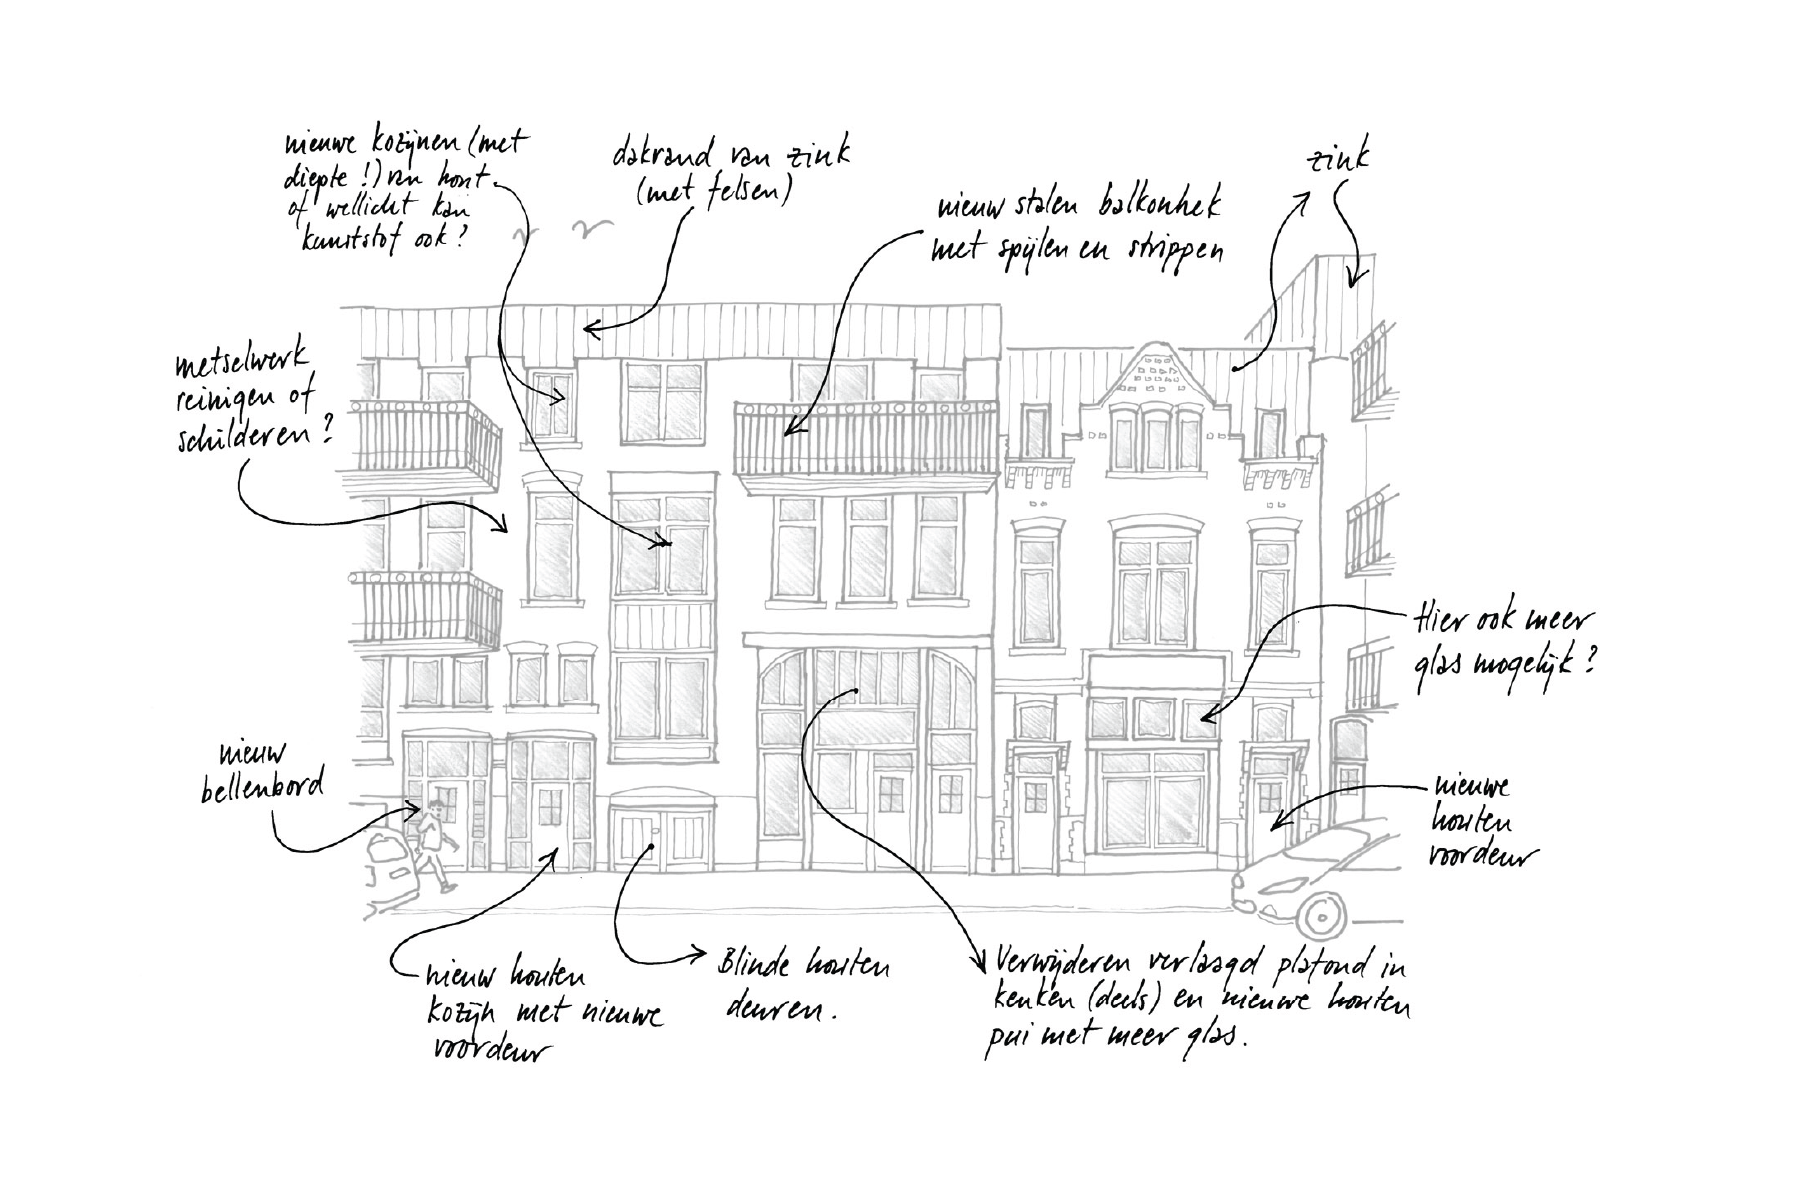 nieuwe kozijnen (met
diepte !) van hout
of wellicht kan
kunststof ook ?
dakrand van zink
(met felsen)
nieuw stalen balkonhek
met spijlen en strippen
zink
metselwerk
reinigen of
schilderen ?
Hier ook meer
glas mogelijk ?
nieuw
bellenbord
nieuwe
houten
voordeur
nieuw houten
kozijn met nieuwe
voordeur
Blinde houten
deuren.
Verwijderen verlaagd plafond in
keuken (deels) en nieuwe houten
pui met meer glas.